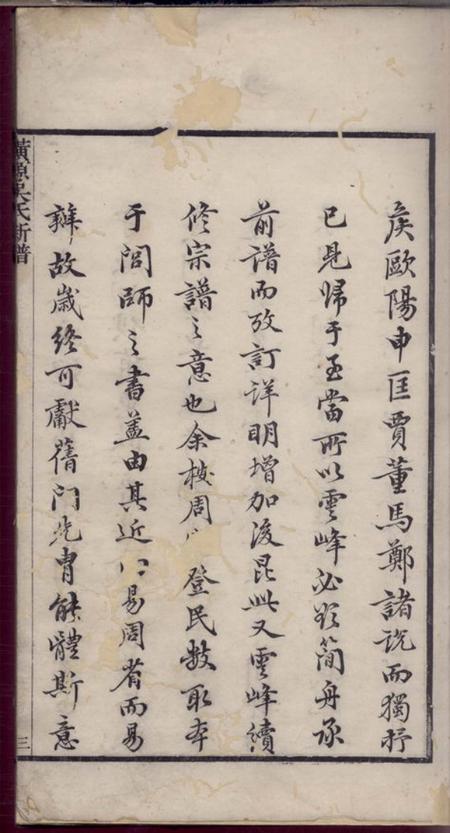 侯歐陽申匡賈董馬鄭諸說而獨抒
已見歸于至當所以雲峰必欲簡舟承
前譜而攷訂詳明增加後昆此又雲峰續
修宗譜之意也余按周 登民數取本
于閭師之書蓋由其近 易周省而易
辨故歲終可獻舊門先胄能體斯意
黃源吳氏新譜
三